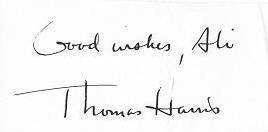 Good wishes, Ali
Thomas Harris